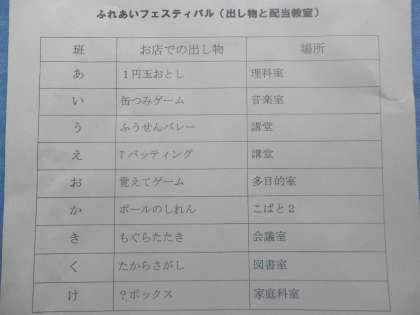 ふれあいフェスティバル（出し物と配当教室）
班 お店での出し物 場所
あ １円玉おとし 理科室
い 缶つみゲーム 音楽室
う ふうせんバレー 講堂
え Ｔバッティング 講堂
お 覚えてゲーム 多目的室
か ボールのしれん こばと２
き もぐらたたき 会議室
く たからさがし 図書室
け ？ボックス 家庭科室